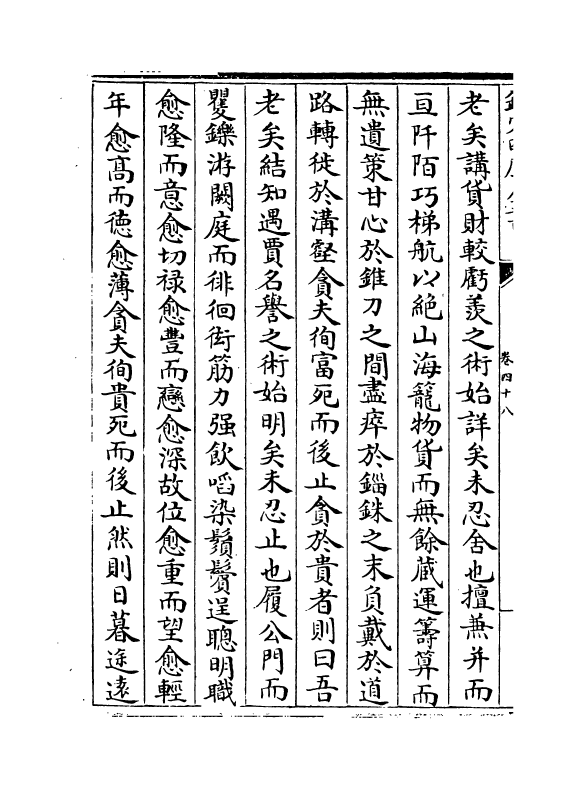 老矣講貨財較虧羨之術始詳矣未忍舍也擅兼并而
亘阡陌巧梯航以絶山海籠物貨而無餘蔵運籌算而
無遺策甘心於錐刀之間盡瘁於錙銖之末負戴於道
路轉徙於溝壑貪夫徇富死而後止貪於貴者則曰吾
老矣結知遇賈名譽之術始明矣未忍止也履公門而
矍鑠游闕庭而徘徊衒筋力强飲啗染鬚鬢逞聰明職
愈隆而意愈切禄愈豐而戀愈深故位愈重而望愈輕
年愈髙而徳愈薄貪夫徇貴死而後止然則日暮途遠
卷四十八